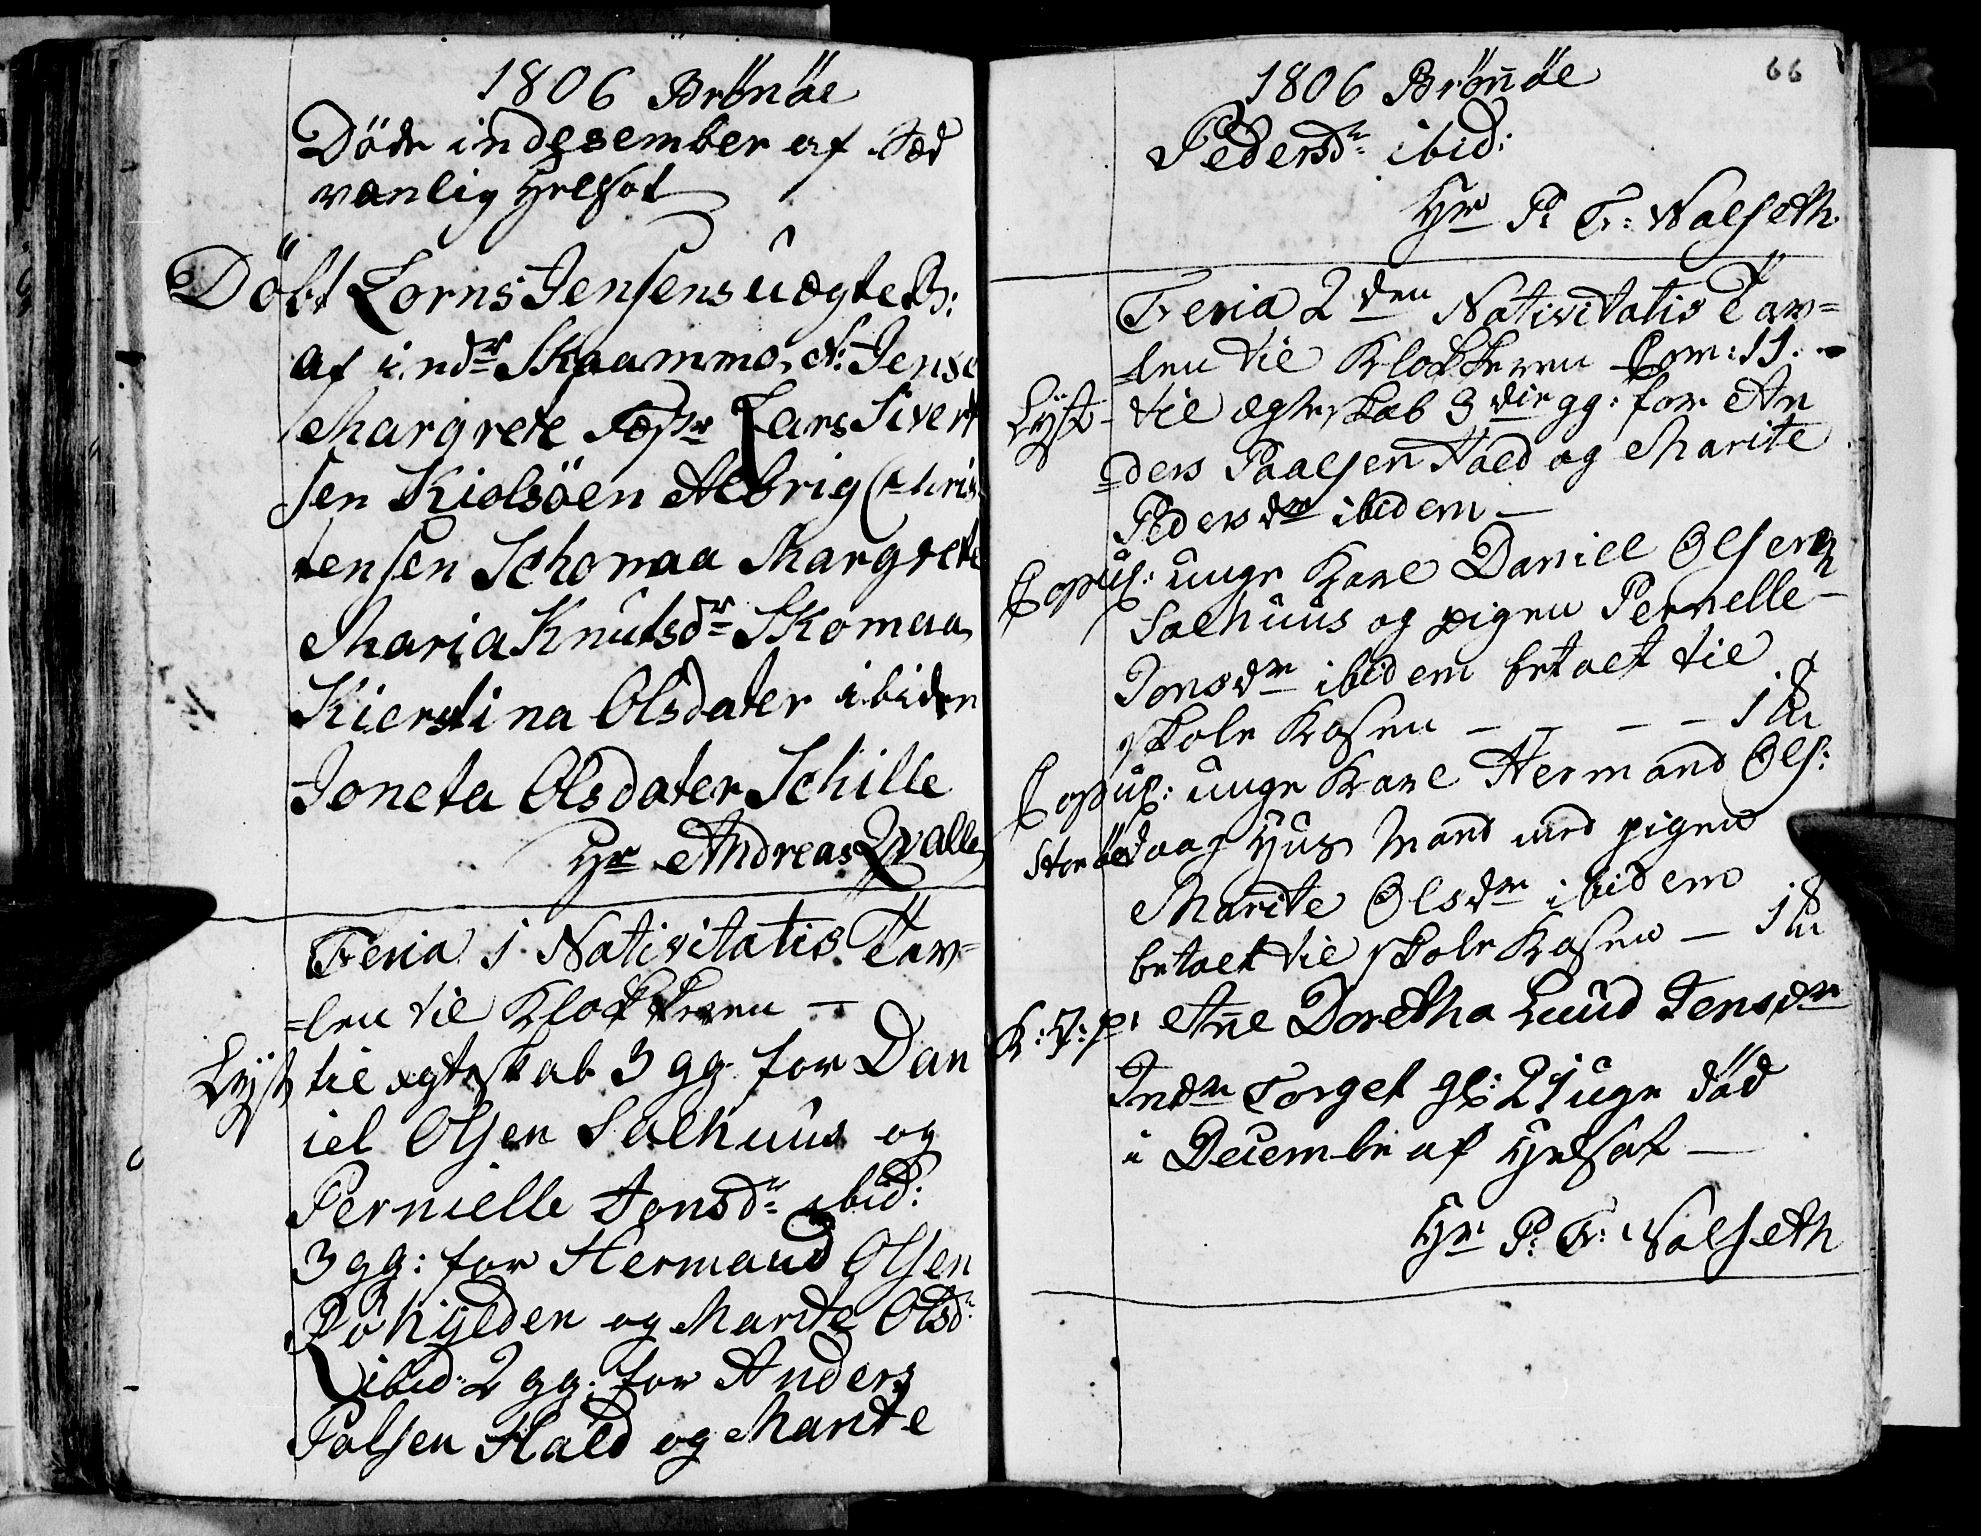 1806 Brönöe
Döde in desember af Sæd
vanlig Helsot
Döbt Lorns Jensens uægte B:
af indr Skaammo, N: Jense
Margrete Fadr Lars Sivert
sen Kiolsöen Albrig Chris
tensen Schomaa Margrete
Maria Knutsdr Skomaa
Kierstina Olsdater ibidem
Joneta Olsdater Schille
Hr Andreas Qvalle
Feria 1 Nativitatis Tav=
=len til Klokkeren —
Lyst til ægteskab 3 gg for Dan
iel Olsen Salhuus og
Pernielle Jonsdr ibid:
3 gg: for Hermand Olsen
Röhylden og Marite Olsdr
ibid: 2 gg: for Anders
Palsen Hald og Marite
66
1806 Brönöe
Pedersdr ibid:
Hr P: F: Walseth
Feria 2den Nativitatis Tav=
=len til Klokkeren Com: 11.
Lyst - til ægteskab 3die gg: for An
ders Paalsen Hald og Marite
Pedersdr ibidem —
Copul: unge Karl Daniel Olsen
Salhuus og pigen Pernelle
Jonsdr ibidem betalt til
skole Kasen — — — — 1
Copul: unge Karl Hermand Ols:
Hus Mand med pigen
Marite Olsdr ibidem
betalt til skole Kasen — 1
K: J: p: Ane Doretha Lund Jensdr
Indr Torget gl: 21 uge död
i Decembr af Helsot —
Hr P: F: Walseth